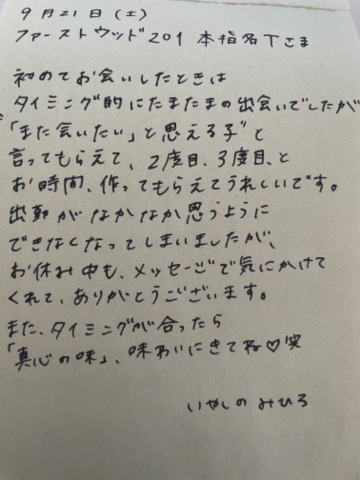 9月21日(土)
ファーストウッド201 本指名Tさま
初めてお会いしたときは
タイミング的にたまたまの出会いでしたが
「また会いたい」と思える子"と
言ってもらえて、2度目、3度目、と
お時間、作ってもらえてうれしいです。
出勤がなかなか思うように
できなくなってしまいましたが、
お休み中も、メッセージで気にかけて
くれて、ありがとうございます。
また、タイミングが合ったら
「真心の味」、味わいにきてね♡笑
いやしの みひろ